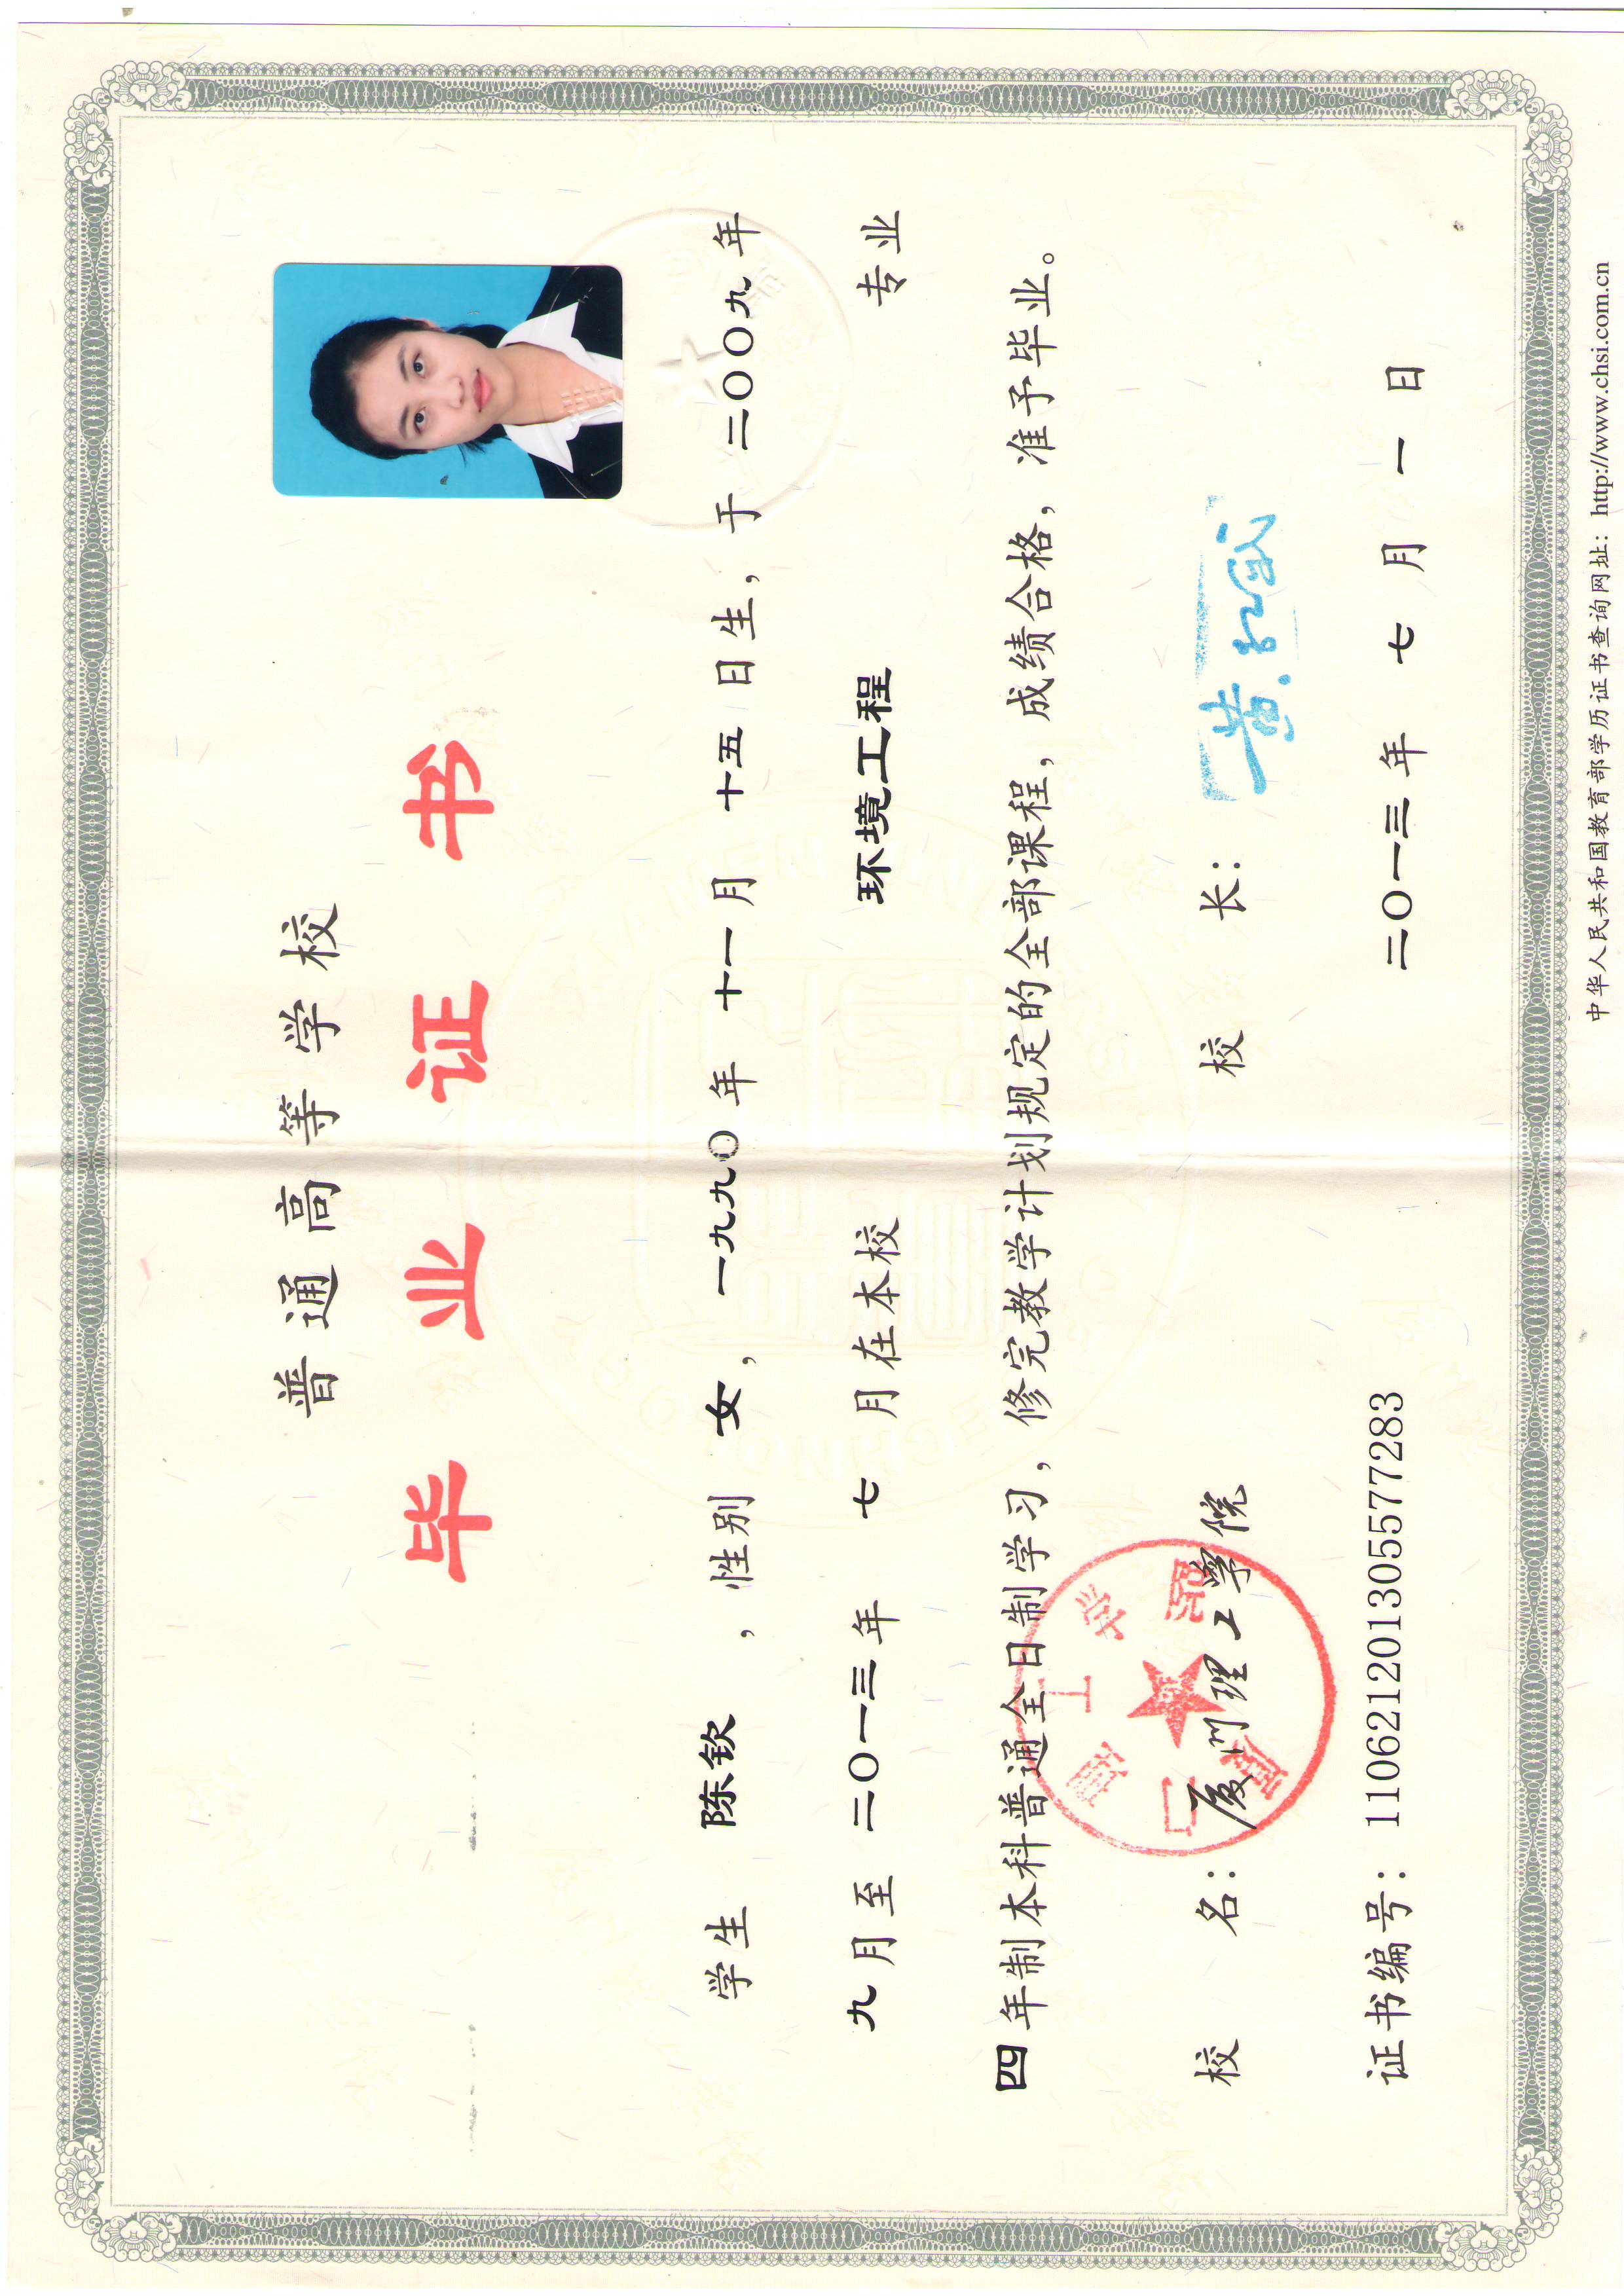 普通高等学校
毕业证书
学生 陈钦 ，性别 女，一九九〇年 十一 月 十五 日生，于 二〇〇九 年
九 月至 二〇一三 年 七 月在本校 环境工程 专业
四 年制本科普通全日制学习，修完教学计划规定的全部课程，成绩合格，准予毕业。
校 名：厦门理工学院 校 长：
证书编号：110621201305577283 二〇一三 年 七 月 一 日
中华人民共和国教育部学历证书查询网址：http://www.chsi.com.cn